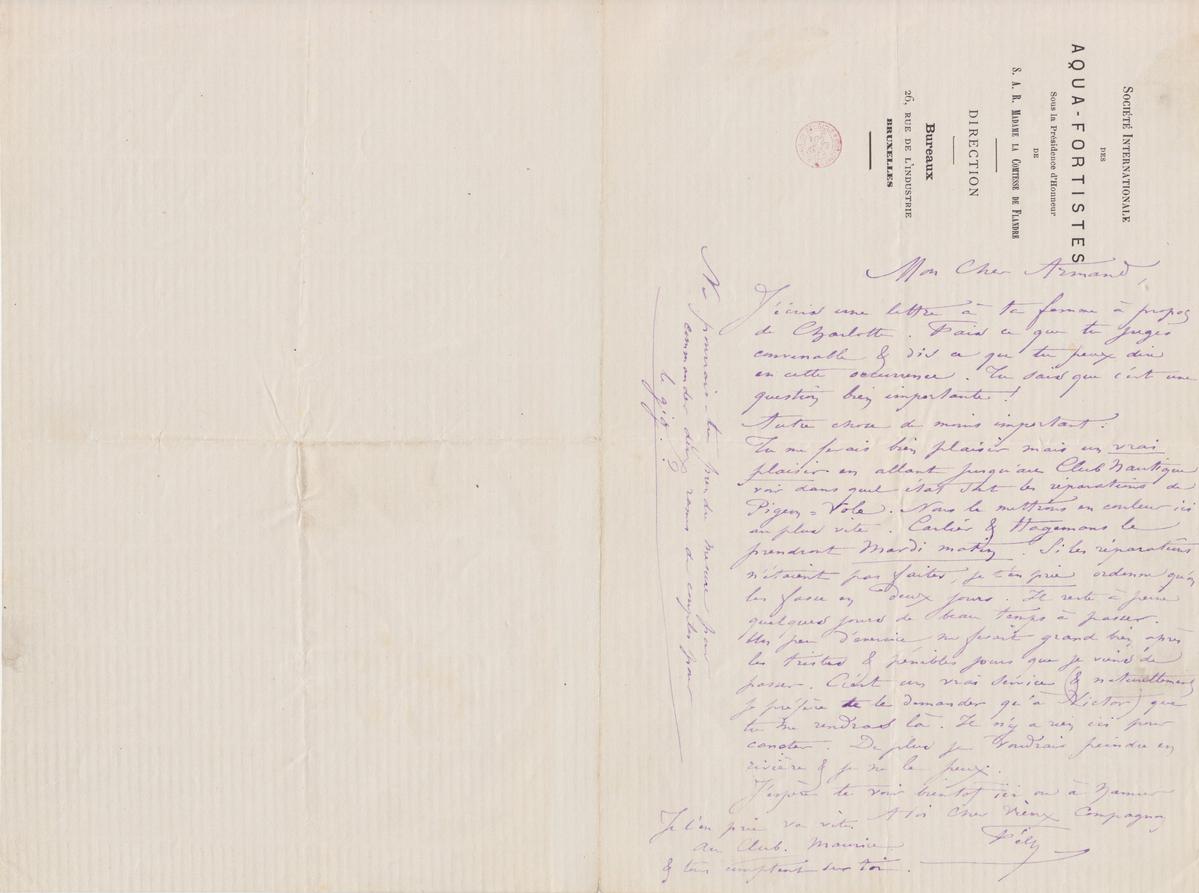 SOCIÉTÉ INTERNATIONALE
DES
AQUA-FORTISTES
Sous la Présidence d'Honneur
DE
S. A. R. MADAME LA COMTESSE DE FLANDRE
DIRECTION
Bureaux
26, RUE DE L'INDUSTRIE
BRUXELLES
Mon Cher Armand,
J'écris une lettre à ta femme à propos
de Charlotte. Fais ce que tu juges
convenable & dis ce que tu peux dire
en cette occurrence. Tu sais que c'est une
question bien importante!
Autre chose de moins important:
Tu me ferais bien plaisir mais un vrai
plaisir en allant jusqu'au Club Nautique
voir dans quel état sont les réparations de
Pigeon=Vole. Nous le mettrons en couleur ici
au plus vite. Carlier & Hagemans le
prendront Mardi matin. Si les réparations
n'étaient pas faites, je t'en prie ordonne qu'on
les fasse en deux jours. Il reste à peine
quelques jours de beau temps à passer.
Un peu d'exercice me ferait grand bien après
les tristes & pénibles jours que je viens de
passer. C'est un vrai service (& naturellement
je préfère te le demander qu'à Victor) que
tu me rendras là. Il n'y a rien ici pour
canoter. De plus je voudrais peindre en
rivière & je ne le peux.
J'espère te voir bientôt ici ou à Namur
A toi Cher Vieux Compagnon
Fély
Je t'en prie va vite
au Club. Maurice
& tous comptent sur toi.
Ne pourrais-tu prendre mesure pour
commander deux rames de couples pour
le gig?